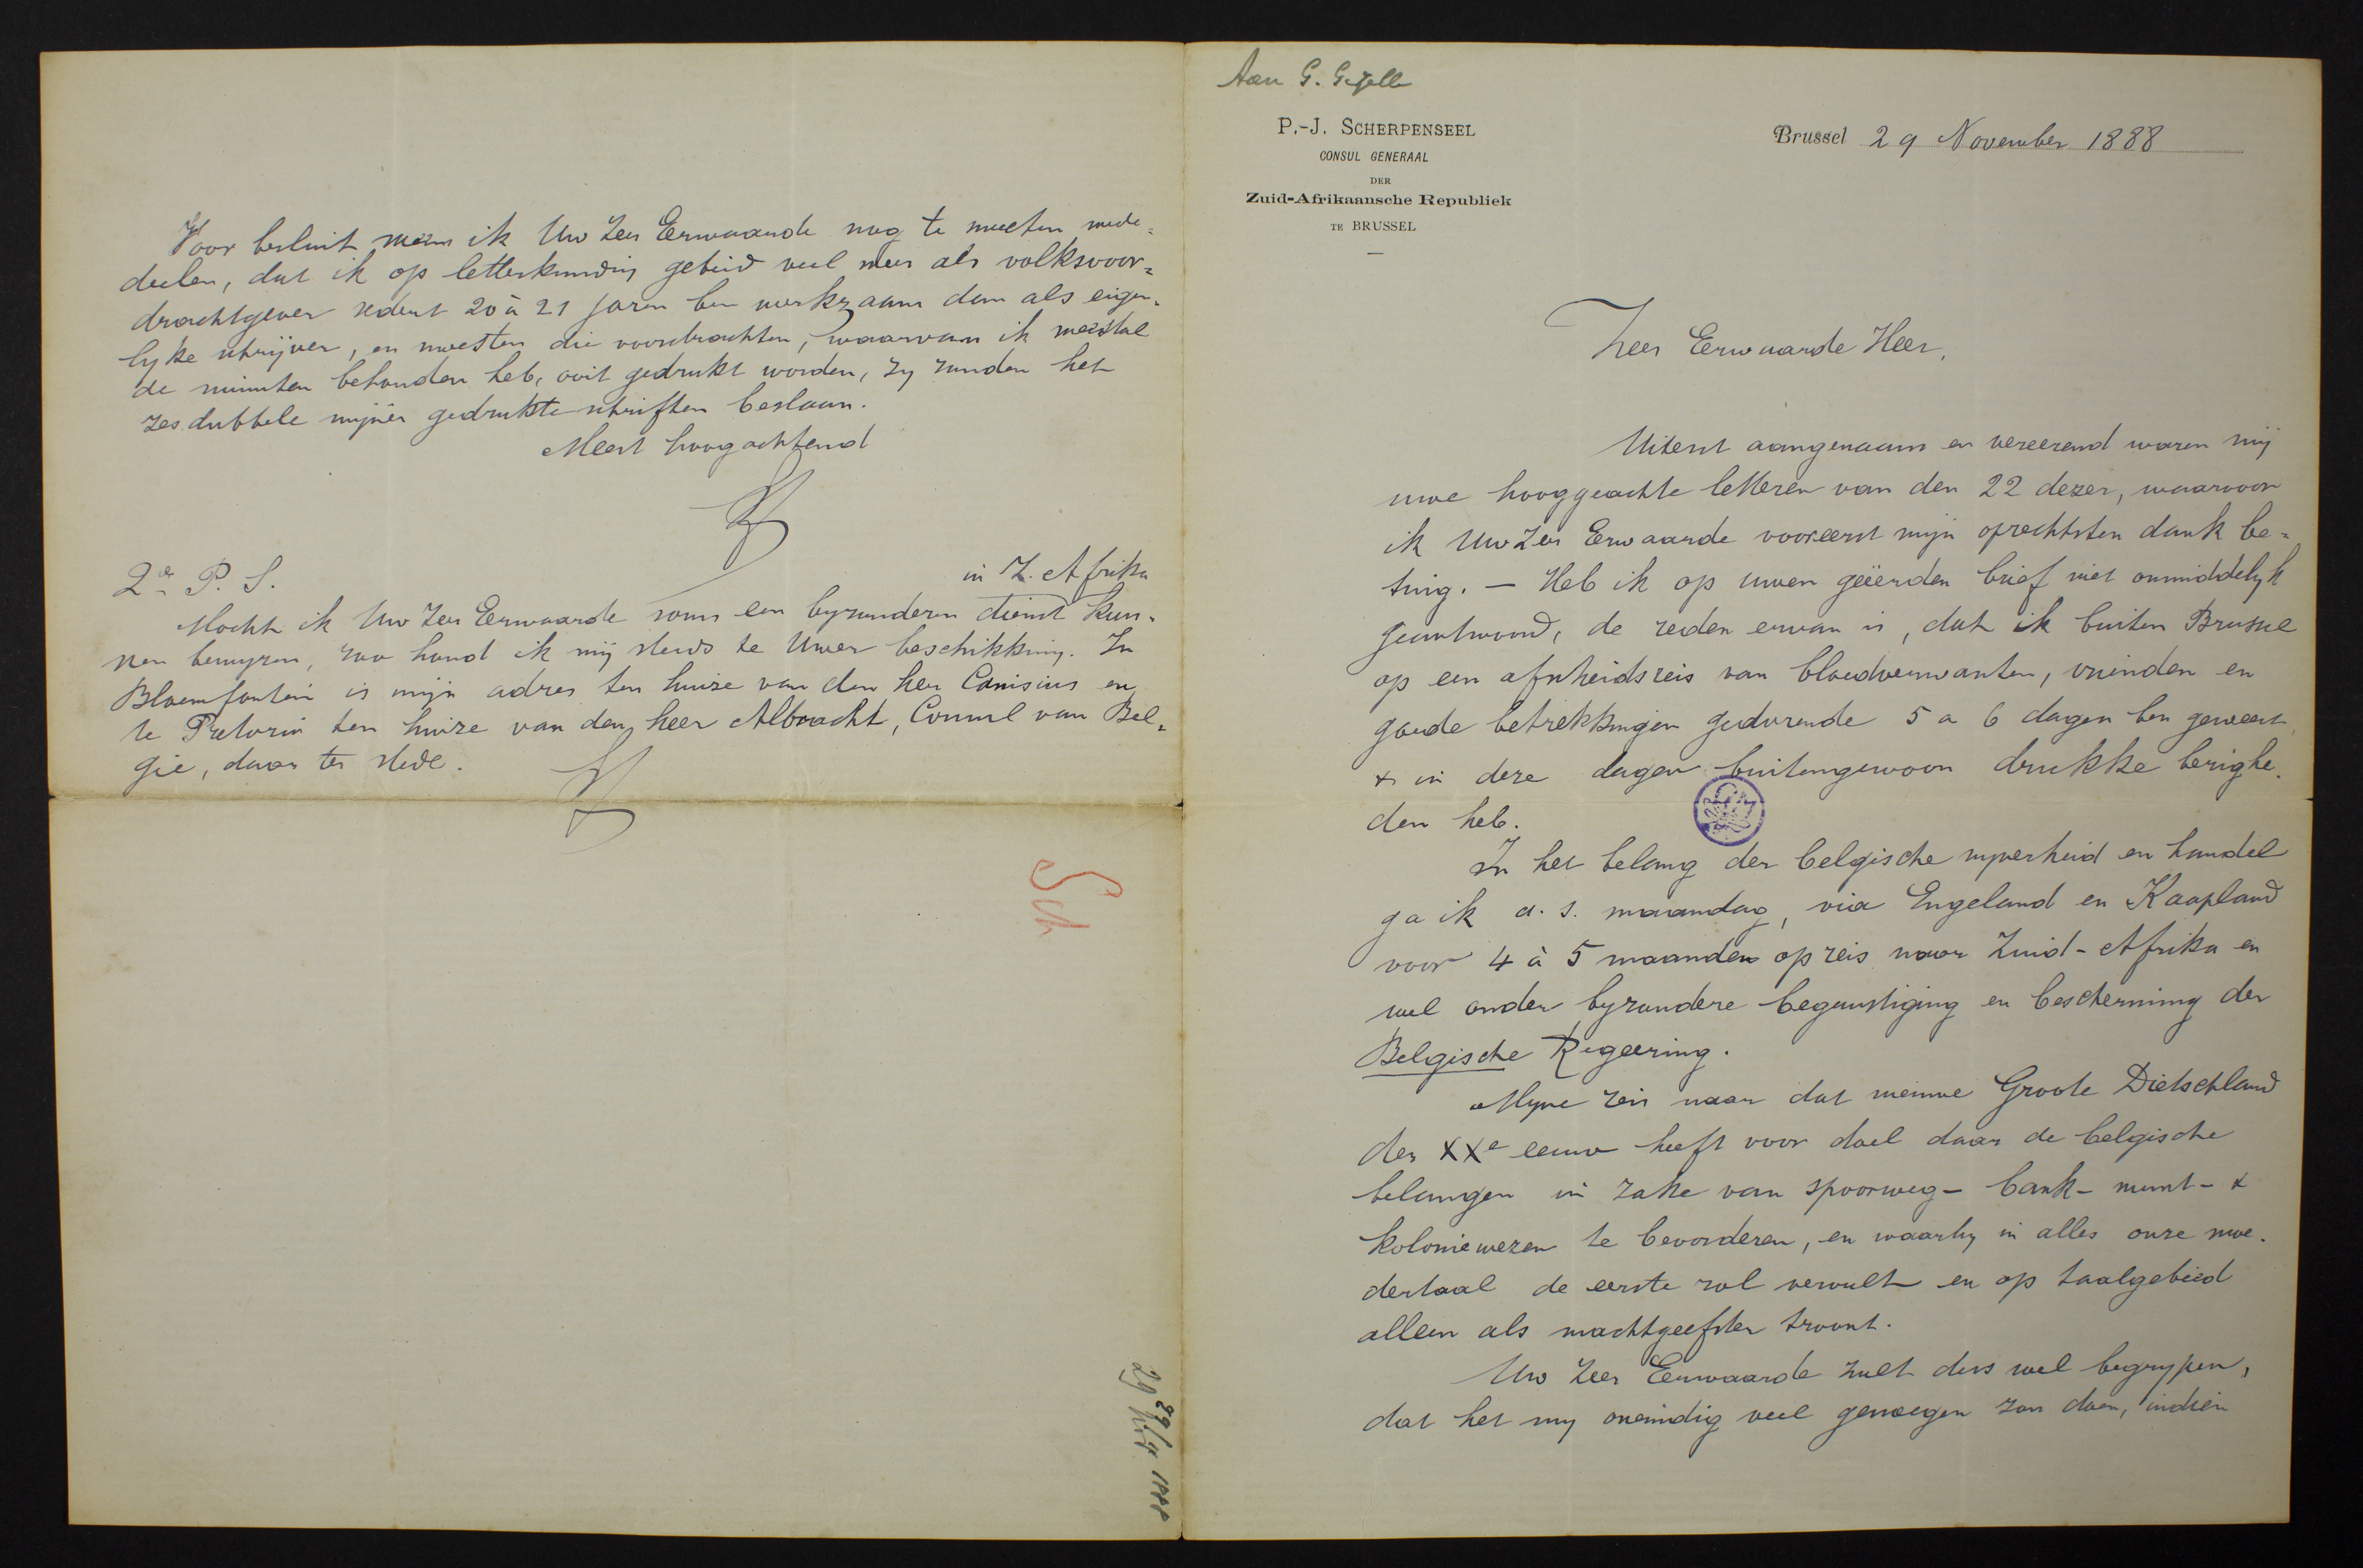 Aan G. Gezelle
P.-J. SCHERPENSEEL
CONSUL GENERAAL
DER
Zuid-Afrikaansche Republiek
TE BRUSSEL
Brussel 29 November 1888
Zeer Eerwaarde Heer,
Uiterst aangenaam en vereerend waren mij
uwe hooggeachte letteren van den 22 dezer, waarvoor
ik Uw Zeer Eerwaarde vooreerst mijn oprechtsten dank be-
tuig. — Heb ik op uwen geëerden brief niet onmiddelyk
geantwoord, de reden ervan is, dat ik buiten Brussel
op een afscheidsreis van bloedverwanten, vrienden en
goede betrekkingen gedurende 5 a 6 dagen ben geweest
& in deze dagen buitengewoon drukke bezighe-
den heb.
In het belang der belgische nyverheid en handel
ga ik a. s. maandag, via Engeland en Kaapland
voor 4 à 5 maanden op reis naar Zuid-Afrika en
wel onder byzondere begunstiging en bescherming der
Belgische Regeering.
Myne reis naar dat nieuwe Groote Dietschland
der XXe eeuw heeft voor doel daar de belgische
belangen in zake van spoorweg- bank- munt- &
koloniewezen te bevorderen, en waarby in alles onze moe-
dertaal de eerste rol vervult en op taalgebied
alleen als machtgeefster troont.
Uw Zeer Eerwaarde zult dus wel begrypen,
dat het my oneindig veel genoegen zou doen, indien
Voor besluit meen ik Uw Zeer Eerwaarde nog te moeten mede-
deelen, dat ik op letterkundig gebied veel meer als volksvoor-
drachtgever sedert 20 à 21 jaren ben werkzaam dan als eigen-
lyke schrijver, en moesten die voordrachten, waarvan ik meestal
de minuten behouden heb, ooit gedrukt worden, zy zouden het
zesdubbele mijner gedrukte schriften beslaan.
Meest hoogachtend
2e P. S.
in Z. Afrika
Mocht ik Uw Zeer Eerwaarde soms een byzonderen dienst kun-
nen bewyzen, zoo houd ik mij steeds te Uwer beschikking. In
Bloemfontein is mijn adres ten huize van den heer Canisius en
te Pretoria ten huize van den heer Albracht, Consul van Bel-
gie, daar ter stede.
Sch
29/11 1888